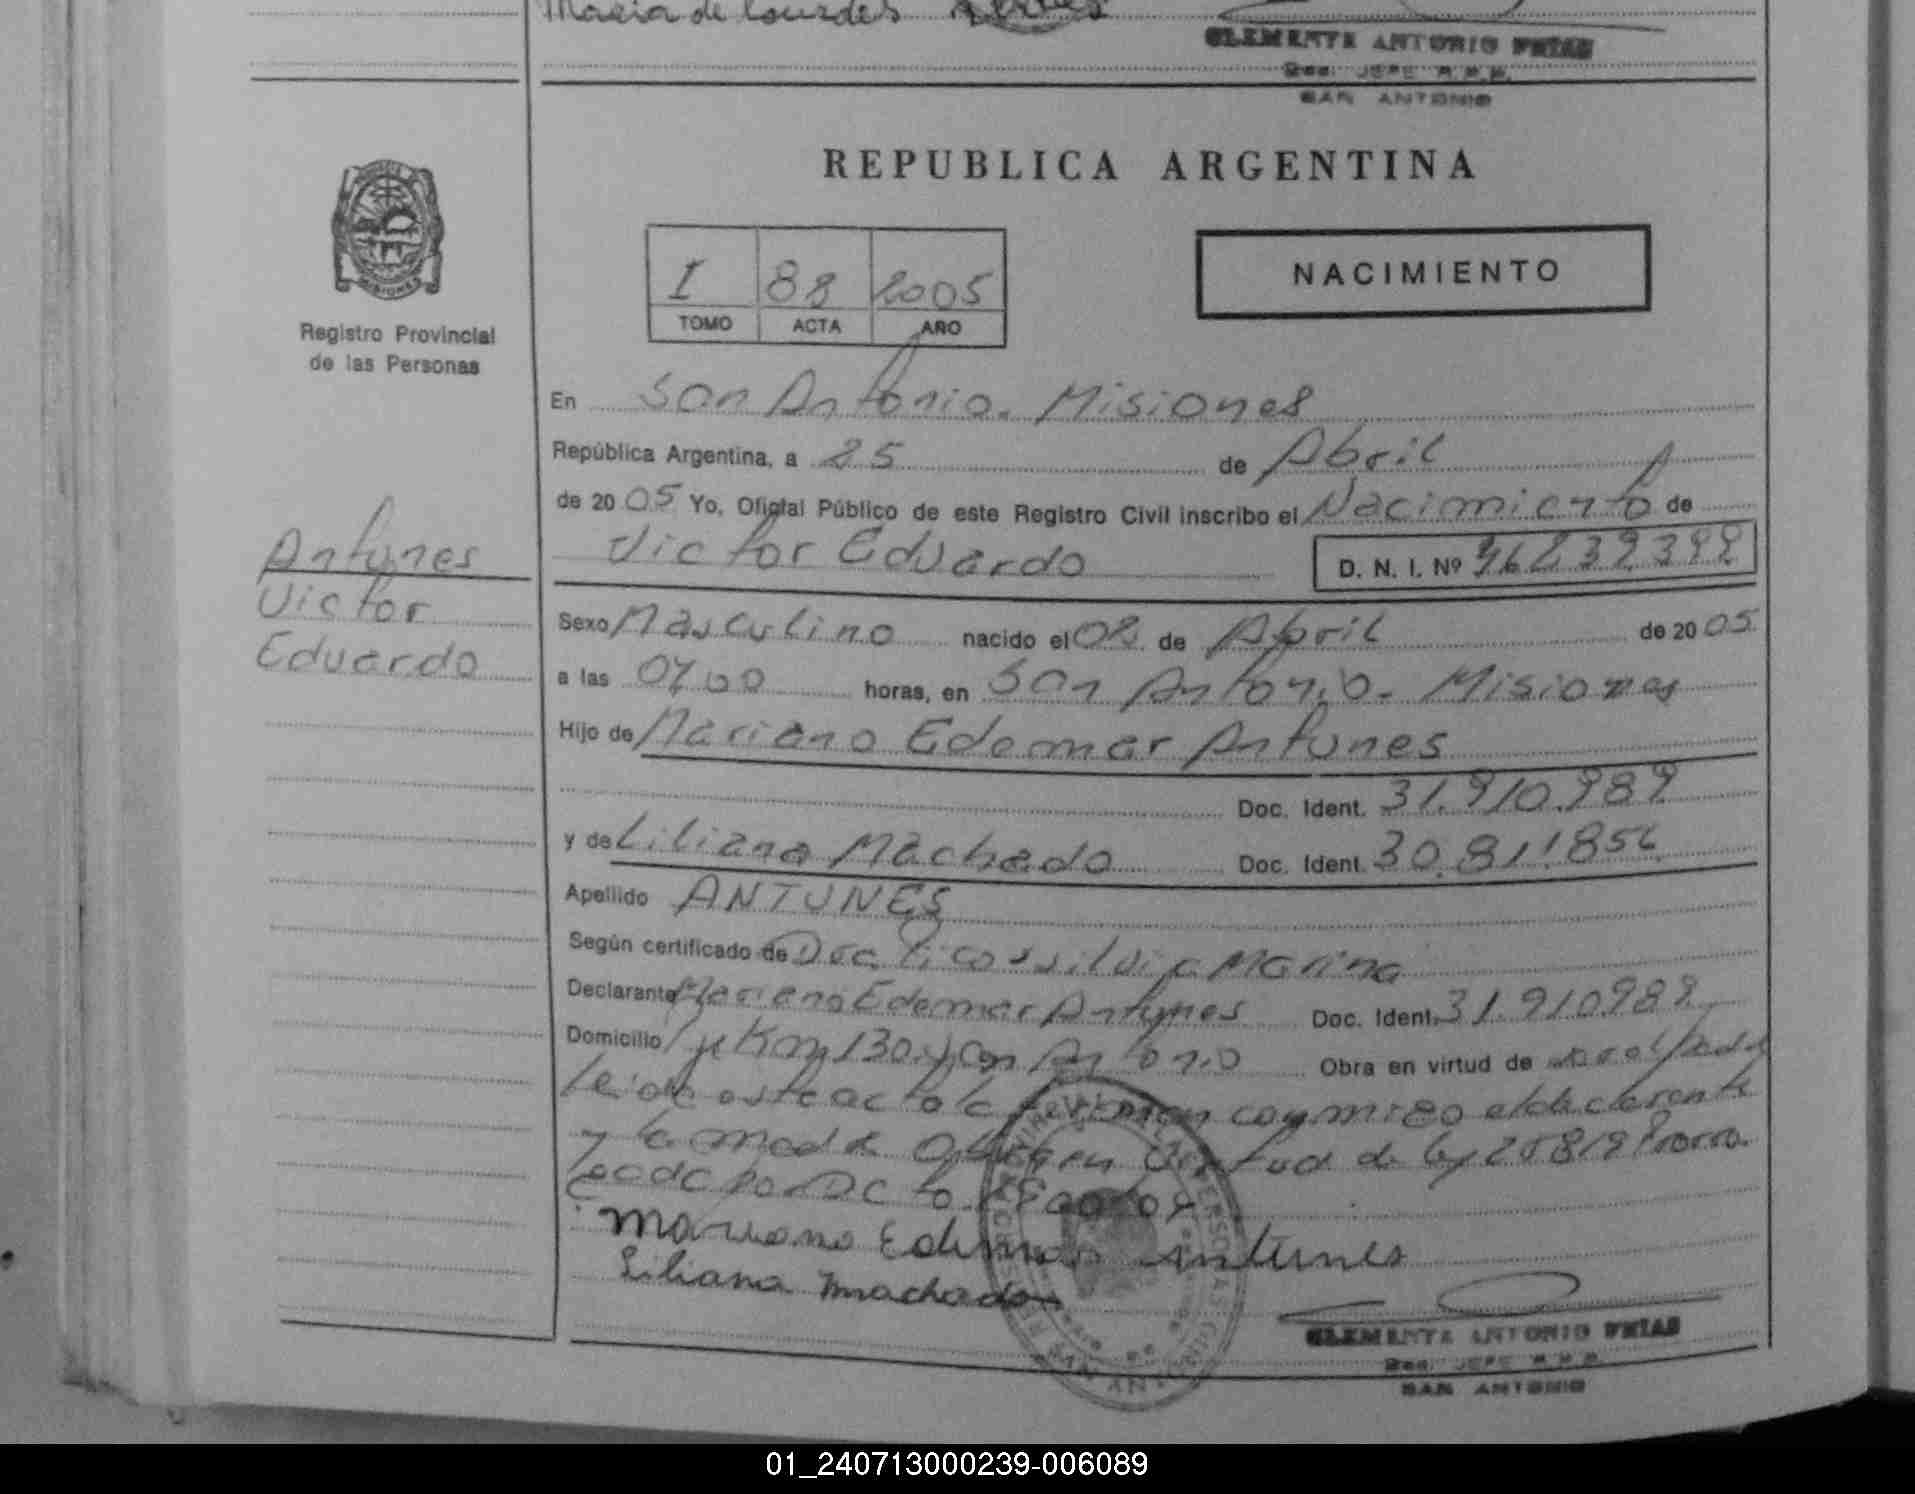 Maria de Lourdes
CLEMENTE ANTONIO FRIAS
SAN ANTONIO
REPUBLICA ARGENTINA
MISIONES
Registro Provincial
de las Personas
I 88 2005
TOMO ACTA AÑO
NACIMIENTO
En San Antonio. Misiones
República Argentina, a 25 de Abril
de 2005 Yo, Oficial Público de este Registro Civil inscribo el Nacimiento de
Victor Eduardo D. N. I. Nº
Antunes
Victor
Eduardo
Sexo Masculino nacido el 08 de Abril de 2005
a las horas, en San Antonio. Misiones
Hijo de Mariano Edemar Antunes
Doc. Ident. 31.910.989
y de Liliana Machado Doc. Ident. 30.811.856
Apellido ANTUNES
Según certificado de Dra. Marina
Declarante Mariano Edemar Antunes Doc. Ident. 31.910989
Domicilio Km 130 San Antonio Obra en virtud de
conmigo el declarante
y la madre en virtud de ley 25819
Mariano Edemar Antunes
Liliana Machado
CLEMENTE ANTONIO FRIAS
SAN ANTONIO
01_240713000239-006089